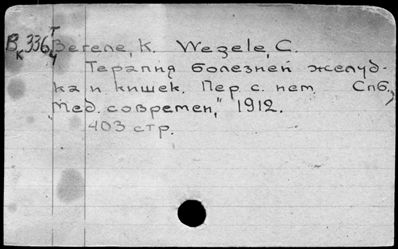 В 336 т Вегеле, К. Wegele, C.
к ч
Терапия болезней желуд-
ка и кишек. Пер. с. нем. Спб.,
"Мед. современ," 1912.
403 стр.